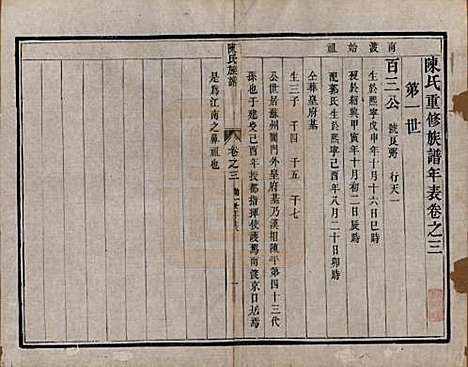 陳氏重修族譜年表卷之三
第一世
南渡始祖
百三公 號良弼 行天一
生於熙寧戊申年十月十六日巳時
歿於紹興甲寅年十月初二日辰時
配郭氏生於熙寧己酉年八月二十日卯時
仝葬皇府基
生三子 千四 千五 千七
公世居蘇州閶門外皇府基乃漢相陳平第四十三代
孫也于建炎己酉年授都指揮使護蹕南渡京口居焉
是爲江南之鼻祖也
陳氏族譜
卷之三
一